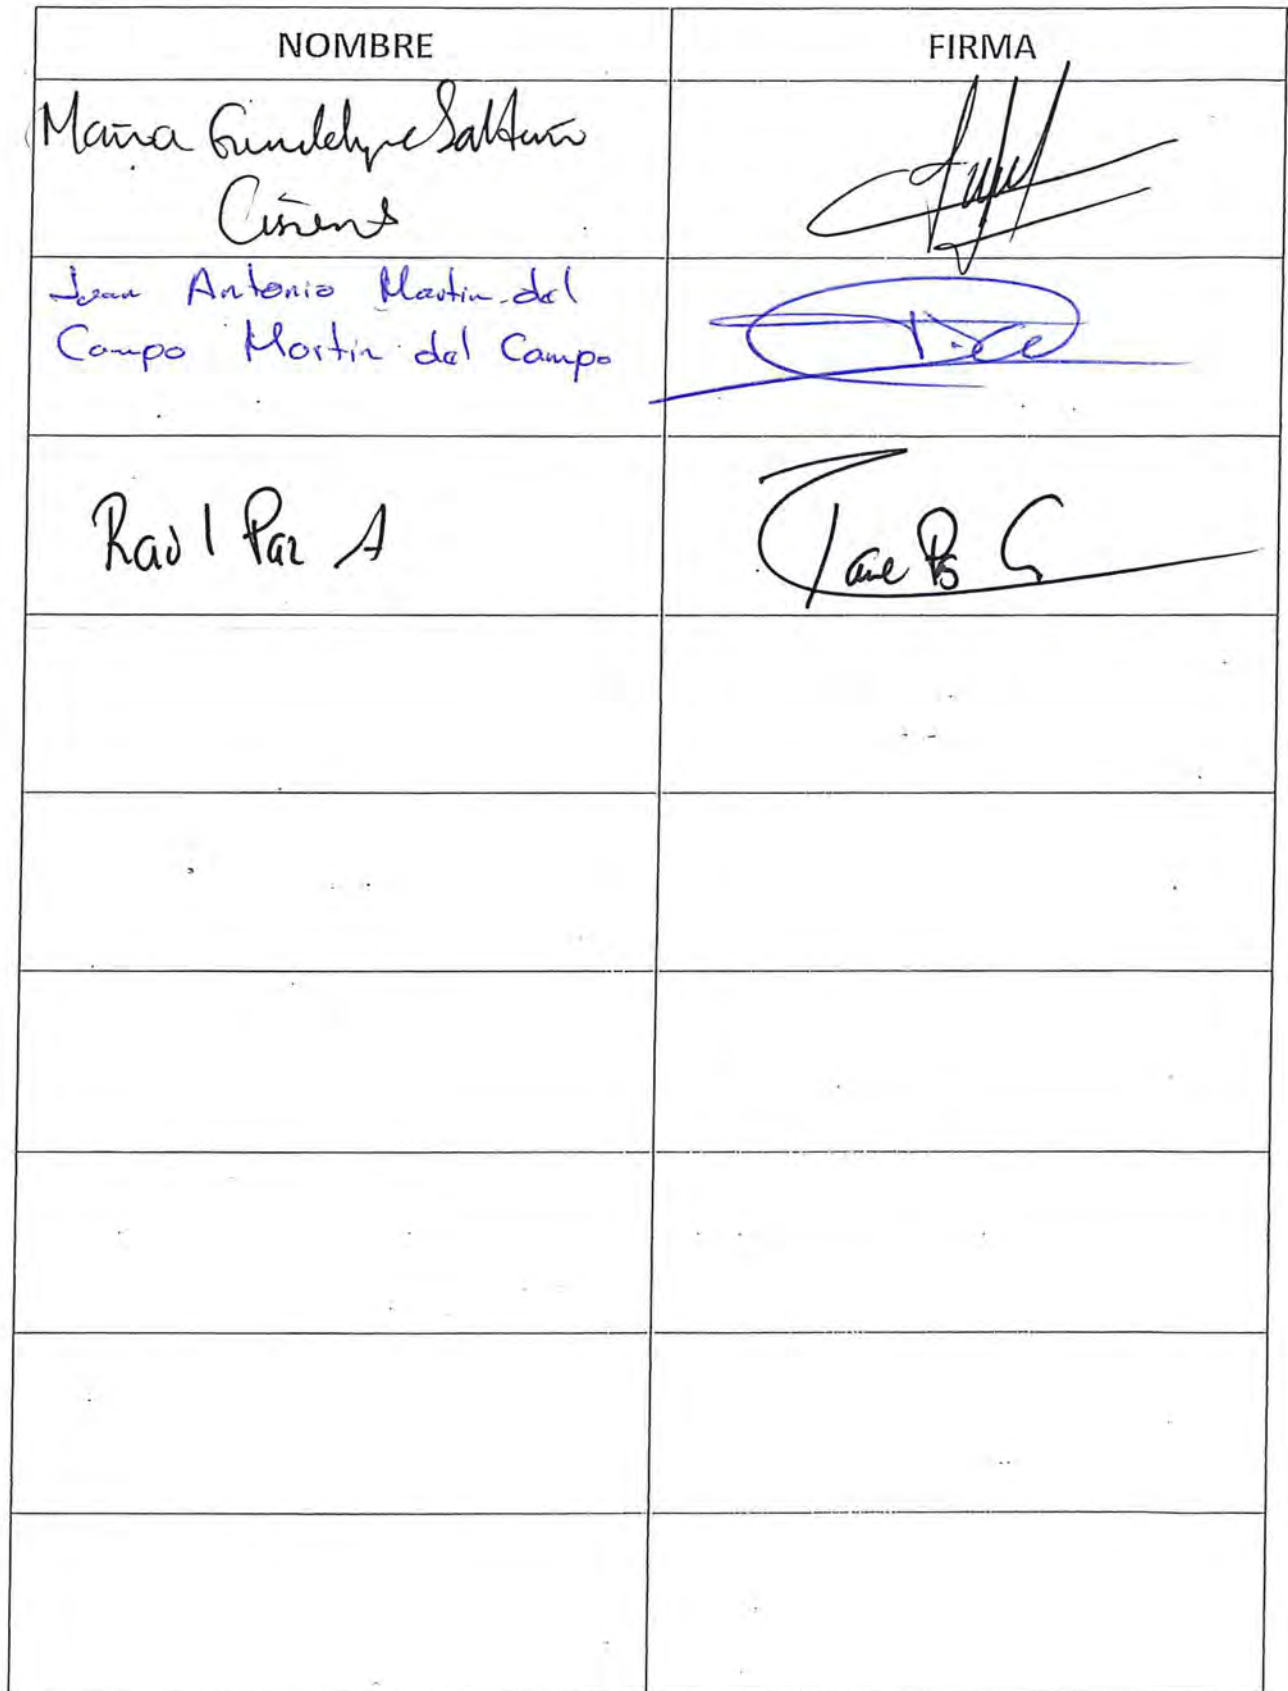 NOMBRE FIRMA
María Guadalupe Saldaña
Cisneros
Juan Antonio Martin del
Campo Martin del Campo
Raul Paz A